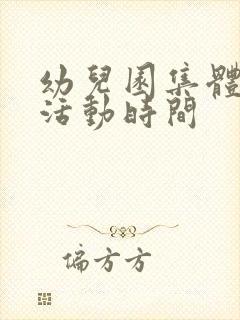 幼兒園集體
活動時間
偏方方